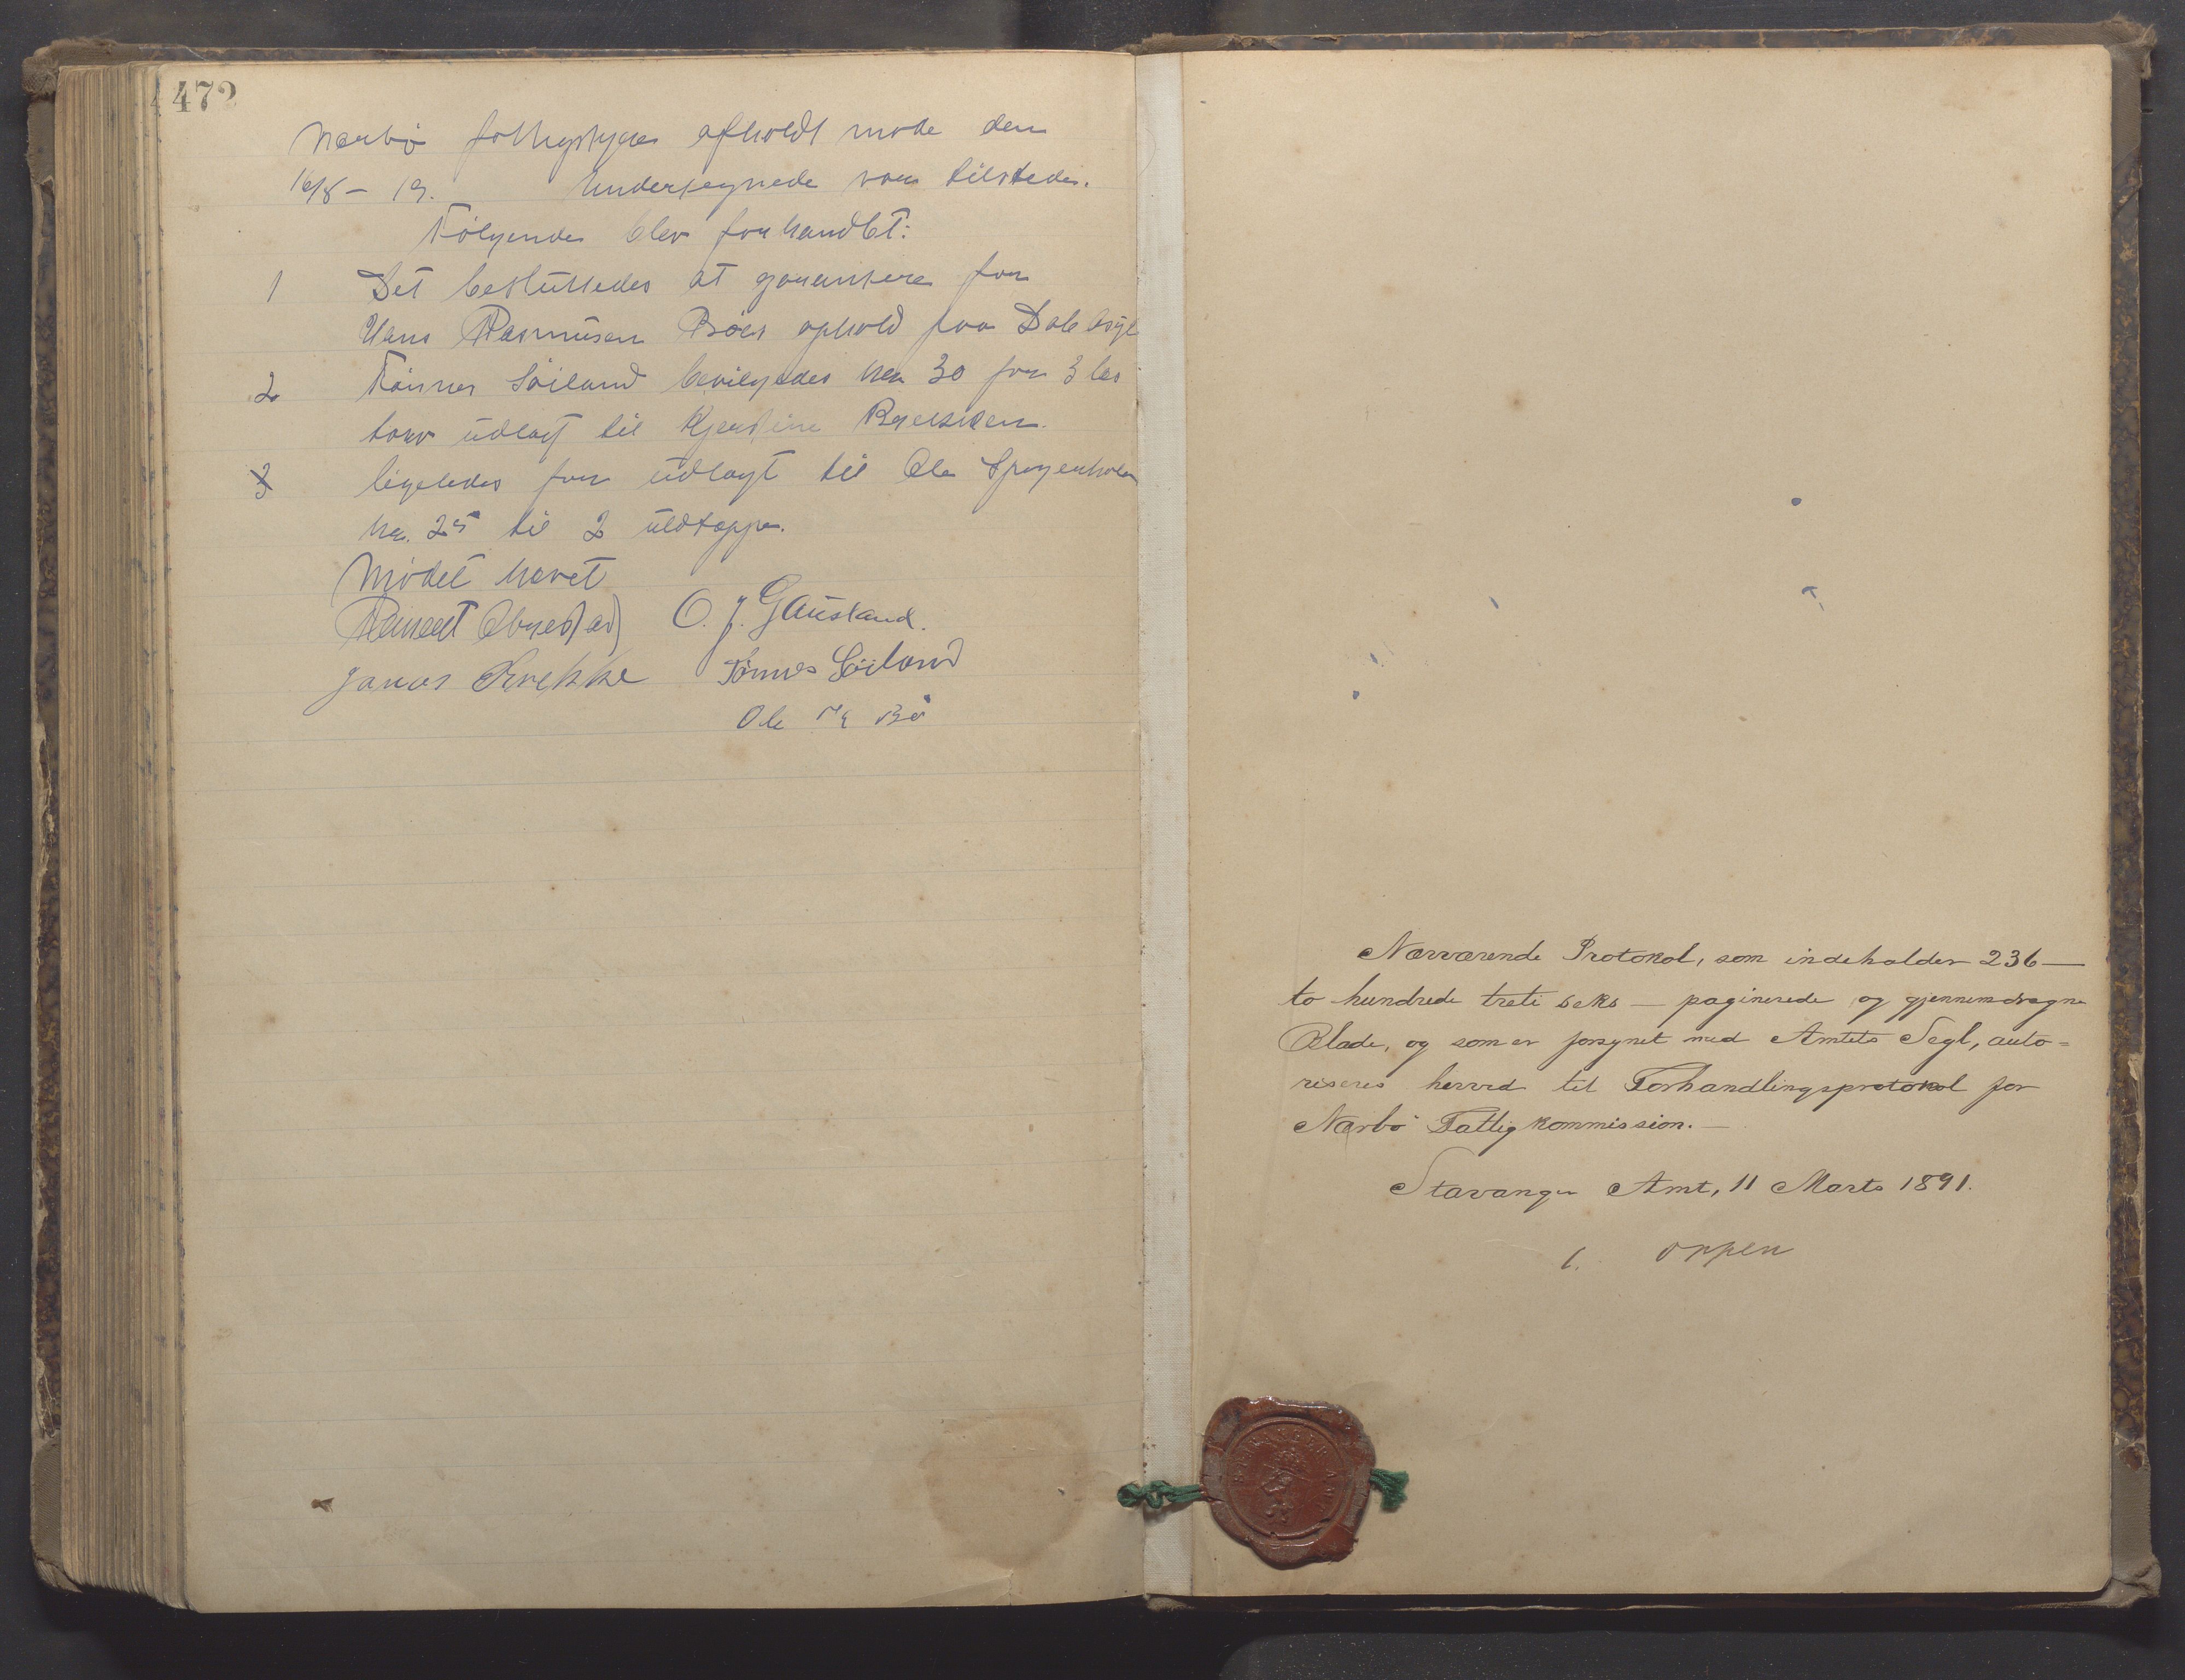 472
Nærbø fattigstyre afholdt møde den
16/8 – 19. Undertegnede var tilstede.
Følgende blev forhandlet:
1 Det besluttedes at garantere for
Hans Rasmusen Bøes ophold paa Dale Asyl
2 Tønnes Søiland beviligedes kr 30 for 3 læs
torv udlagt til
3 ligeledes for udlagt til Ole
kr. 25 til 2 uldtæpper.
Mødet hævet
Reinert Obrestad O. J. Gausland.
Jonas Kvekke Tønnes Søiland
Ole Bø
Nærværende Protokol, som indeholder 236 —
to hundrede treti seks — paginerede og gjennemdragne
Blade, og som er forsynet med Amtets Segl, auto=
riseres herved til Forhandlingsprotokol for
Nærbø Fattigkommission. —
Stavanger Amt, 11 Marts 1891.
Oppen
STAVANGER AMT